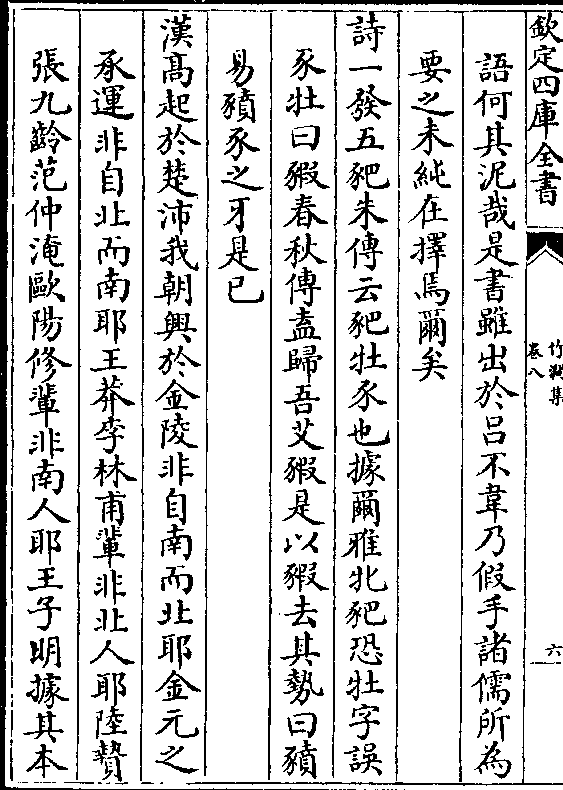 欽定四庫全書
卷八
六
語何其泥哉是書雖出於吕不韋乃假手諸儒所為
要之未純在擇焉爾矣
詩一發五豝朱傳云豝牡豕也據爾雅牝豝恐牡字誤
豕牡曰豭春秋傳盍歸吾艾豭是以豭去其勢曰豶
易豶豕之牙是已
漢髙起於楚沛我朝興於金陵非自南而北耶金元之
承運非自北而南耶王莽李林甫輩非北人耶陸贄
張九齡范仲淹歐陽修輩非南人耶王子明據其本